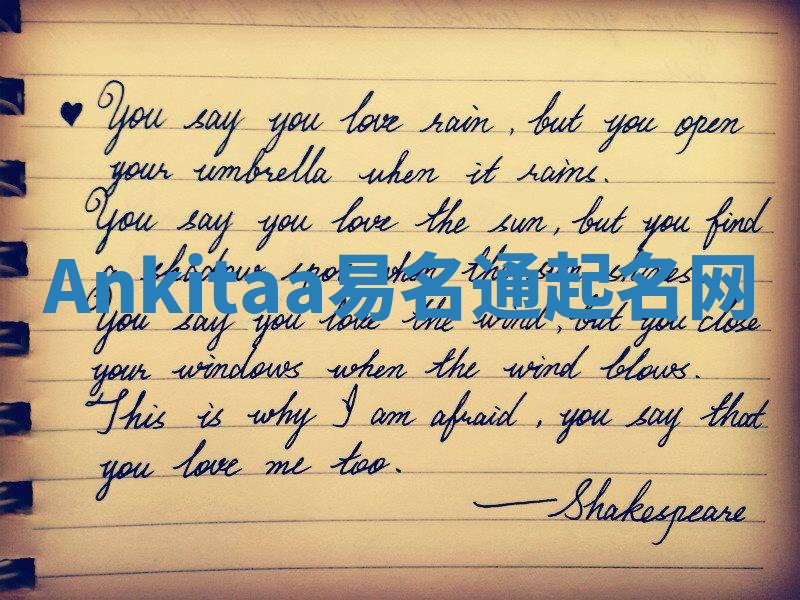 ♥ You say you love rain, but you open
your umbrella when it rains.
You say you love the sun, but you find
a shadow spot when the sun shines
Ankitaa易名通起名网
You say you love the wind, but you close
your windows when the wind blows.
This is why I am afraid, you say that
you love me too.
— Shakespeare